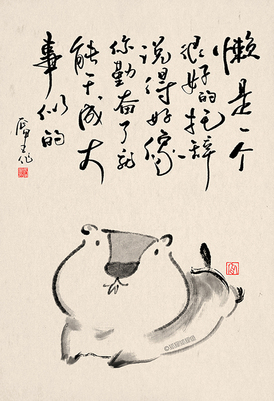 懒是一个
很好的托辞
说得好像
你勤奋了就
能干成大
事似的